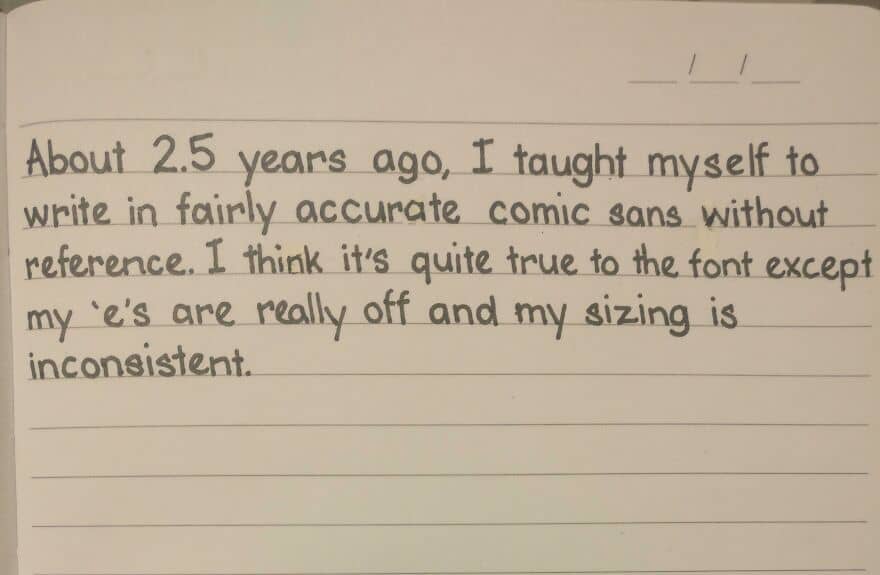 / /
About 2.5 years ago, I taught myself to
write in fairly accurate comic sans without
reference. I think it's quite true to the font except
my 'e's are really off and my sizing is
inconsistent.